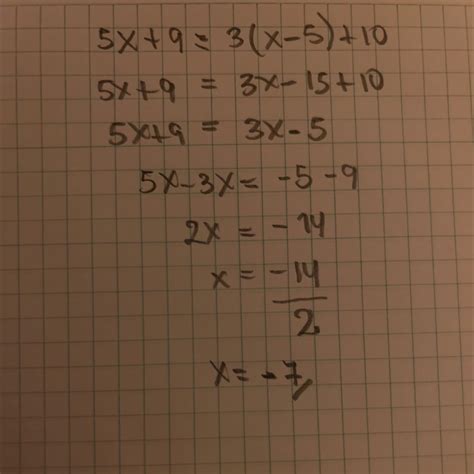 5x+9 = 3(x-5)+10
5x+9 = 3x-15+10
5x+9 = 3x-5
5x-3x= -5-9
2x = -14
x = -14
2
x= -7